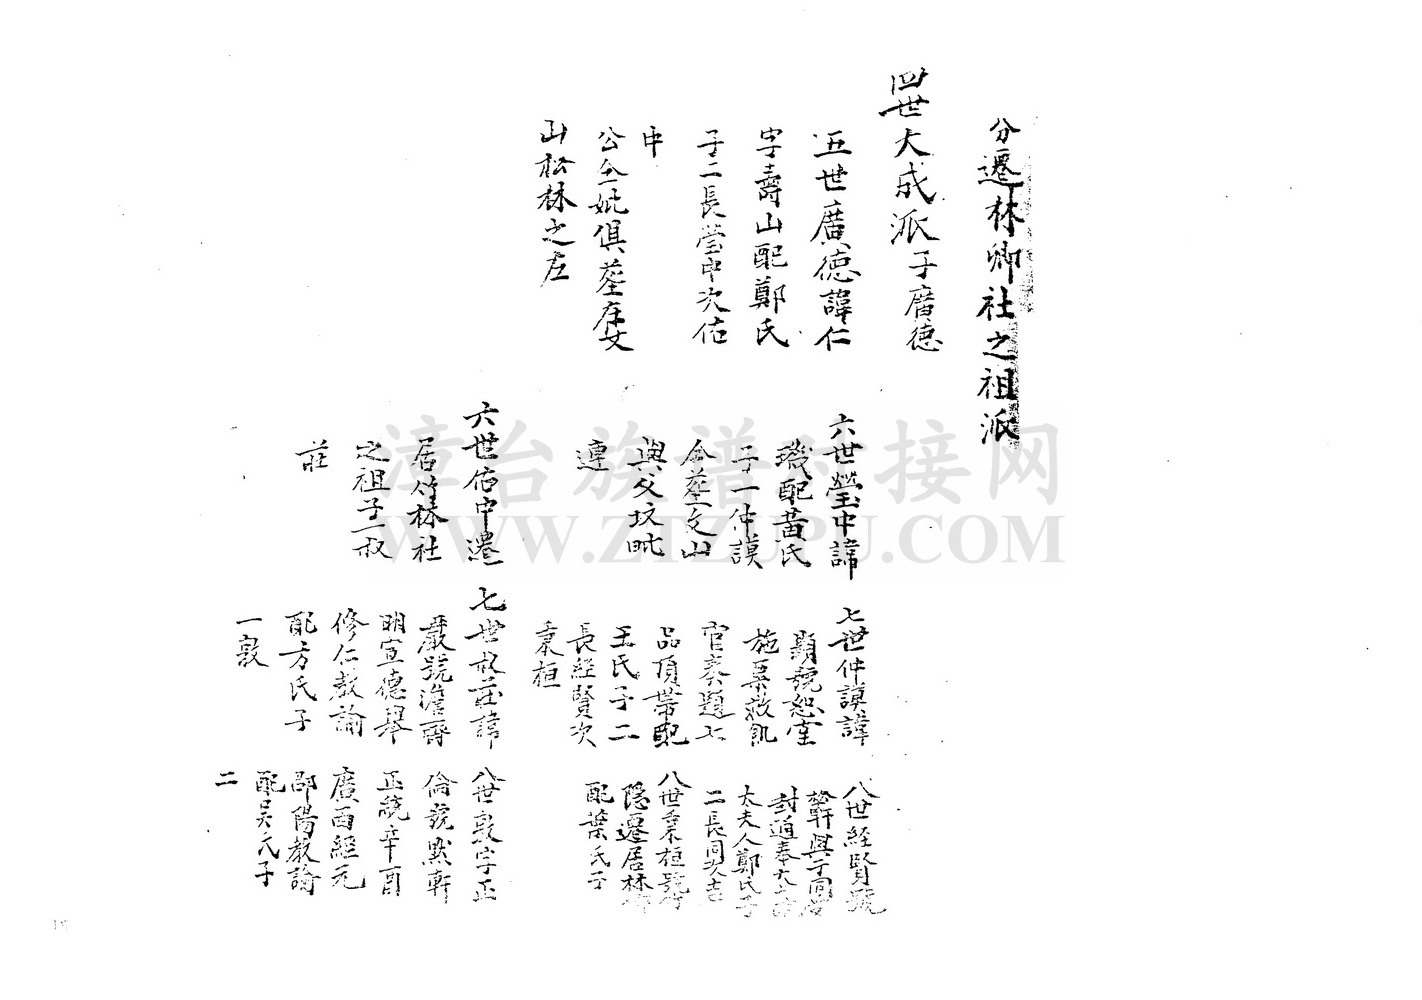 分遷林卿社之祖派
四世大成派子廣德
五世廣德諱仁
字壽山配鄭氏
子二長瑩中次佑
中
公仝妣俱葬庵
山松林之左
六世瑩中諱
璣配黃氏
子一仲謨
合葬文山
與父坟毗
連
六世佑中遷
居竹林社
之祖子一叔
莊
七世仲謨諱
顯號恕堂
施粟救飢
官奏題七
品頂帶配
王氏子二
長經賢次
秉桓
七世叔莊諱
嚴號澹齋
明宣德舉
修仁教諭
配方氏子
一敦
八世經賢號
幹與子同
封通奉大
太夫人鄭氏子
二長同次吉
八世秉桓號
隱遷居林
配葉氏子
八世敦字正
倫號默軒
正統辛酉
廣西經元
邵陽教諭
配吳氏子
二
漳台族谱对接网
WWW.ZTZUPU.COM